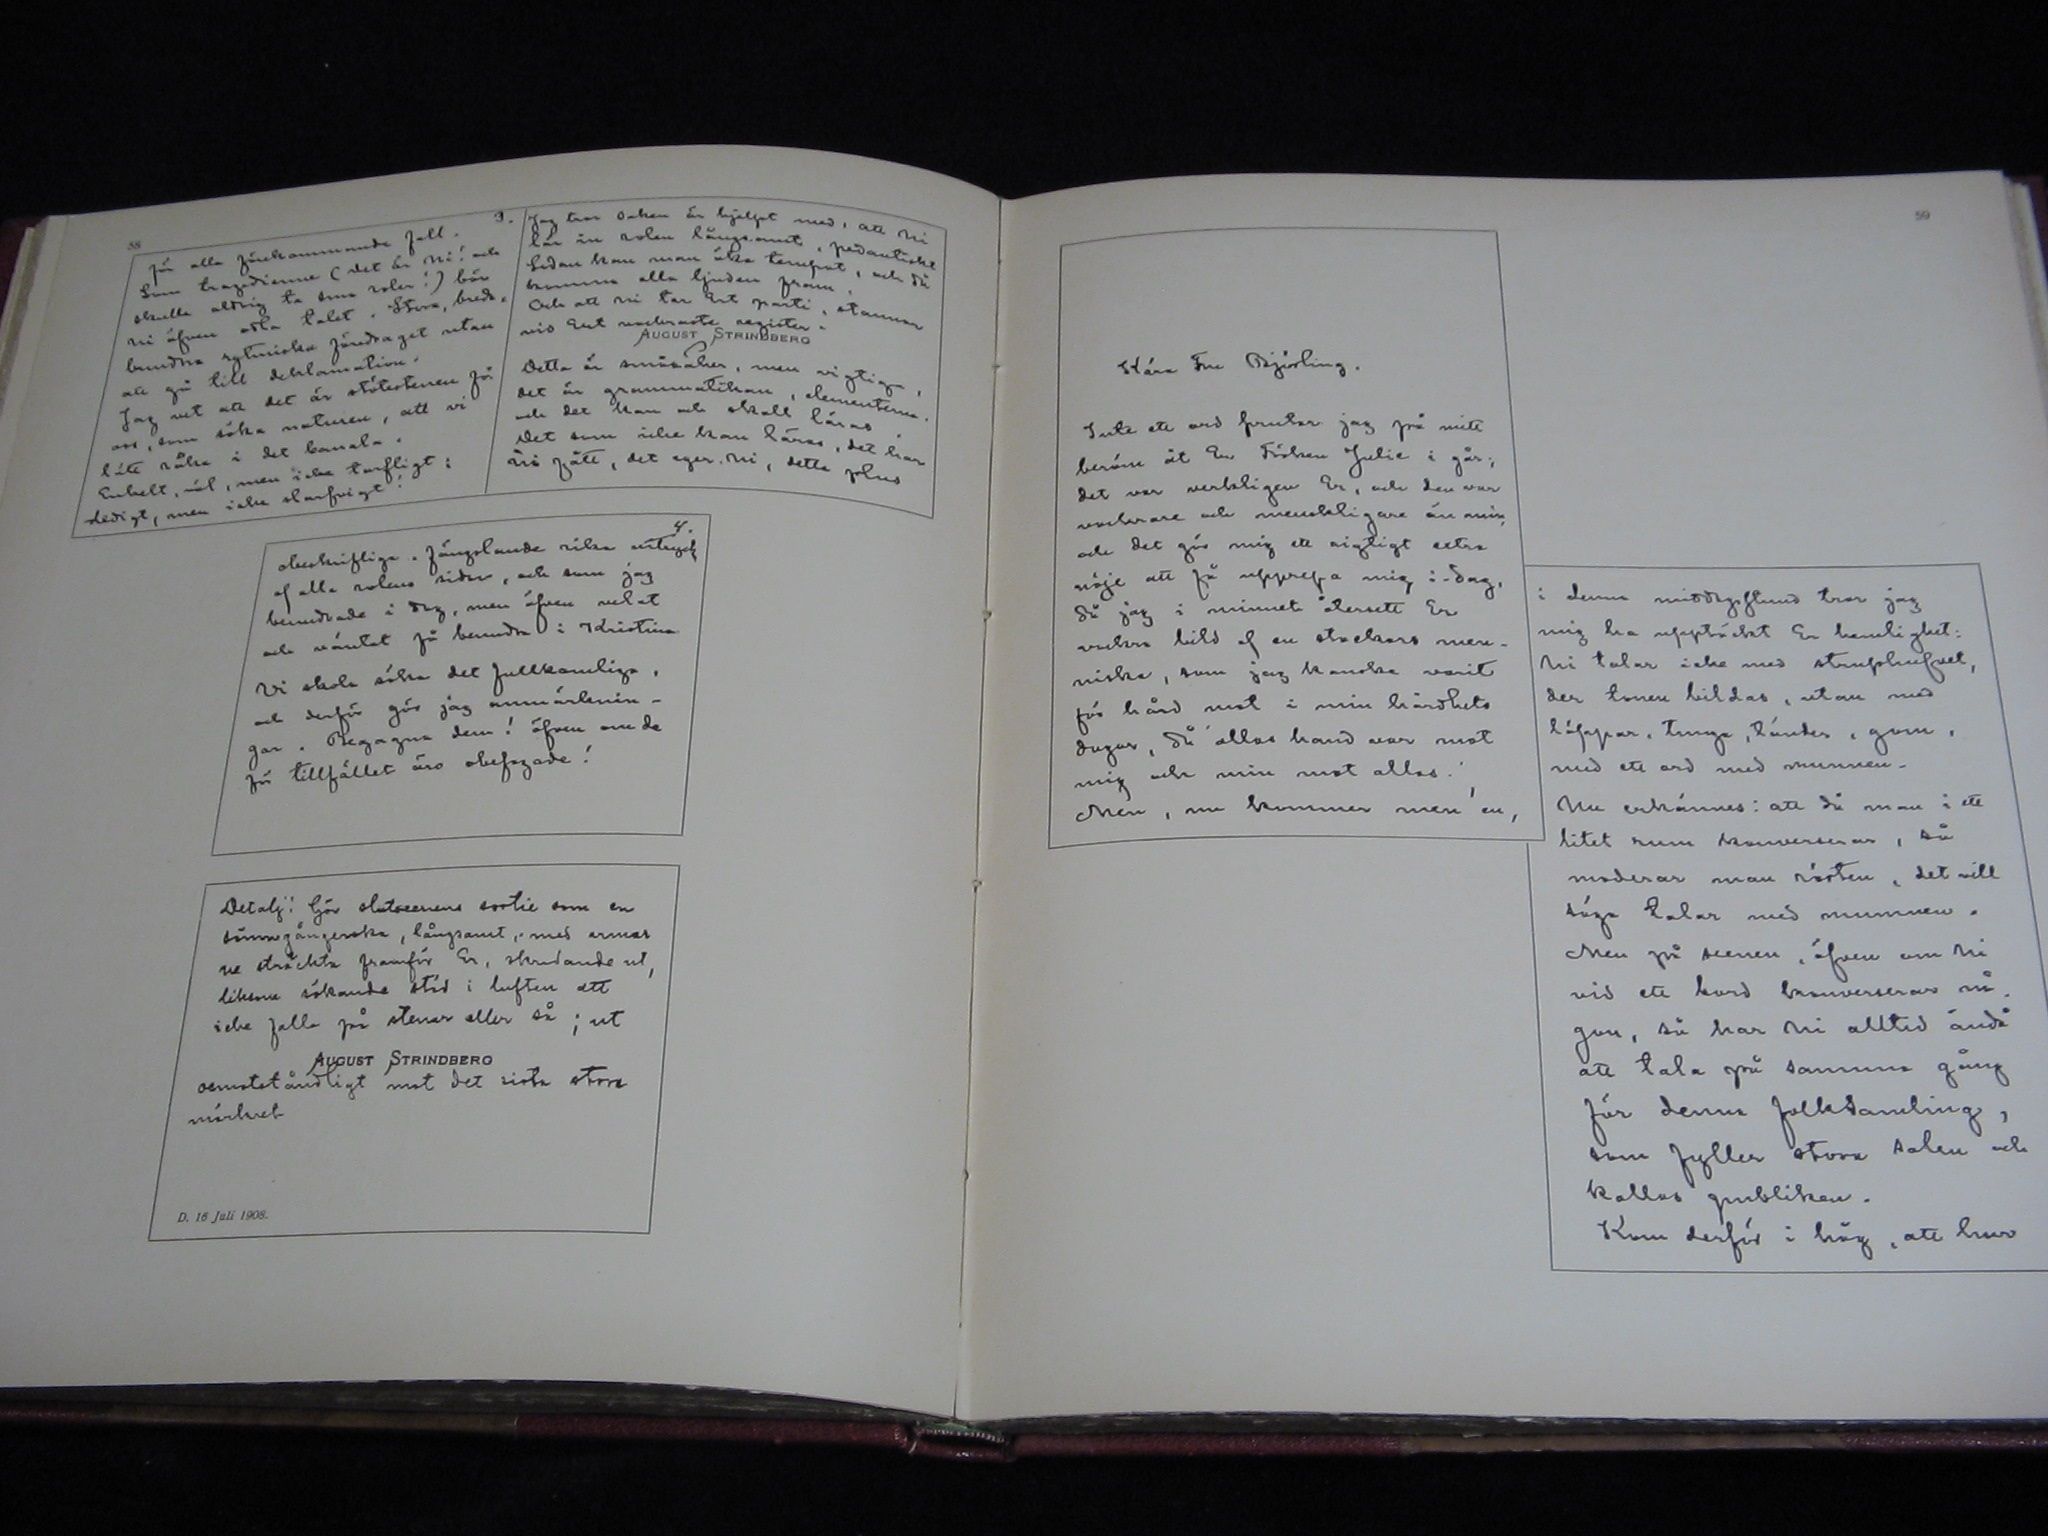 58
3.
för alla förekommande fall.
Som tragedienne (det är Ni! och
skulle aldrig ta små roler!) bör
Ni äfven odla talet. Stora, breda,
bundna rytmiska föredraget utan
att gå till deklamation.
Jag vet att det är stötestenen för
oss, som söka naturen, att vi
lätt råka i det banala.
Enkelt, ja, men icke torftigt;
ledigt, men icke slarfvigt!
Jag tror saken är hjelpt med, att Ni
lär in rolen långsamt, pedantiskt
Sedan kan man öka tempot, och då
komma alla ljuden fram.
Och att Ni tar Ert parti, stannar
vid Ert vackraste register.
AUGUST STRINDBERG
Detta är småsaker, men vigtiga,
det är grammatikan, elementerna,
och det kan och skall läras.
Det som icke kan läras, det har
Ni fått, det eger Ni, detta plus
4.
obeskrifliga. Fängslande rika uttryck
af alla rolens sidor, och som jag
beundrade i dag, men äfven velat
och väntat få beundra i Kristina
Vi skola söka det fullkomliga,
och derför gör jag anmärknin-
gar. Begagna dem! äfven om de
för tillfället äro obefogade!
Detalj! Gör slutscenens sortie som en
sömngångerska, långsamt, med armar
ne sträckta framför Er, skridande ut,
liksom sökande stöd i luften att
icke falla på stenar eller så; ut
AUGUST STRINDBERG
oemotståndligt mot det sista stora
mörkret
D. 16 Juli 1908.
59
Kära Fru Björling.
Inte ett ord prutar jag på mitt
beröm åt Er Fröken Julie i går;
det var verkligen Er, och den var
vackrare och menskligare än min,
och det gör mig ett riktigt extra
nöje att få upprepa mig i-dag,
då jag i minnet återsett Er
vackra bild af en stackars men-
niska, som jag kanske varit
för hård mot i min hårdhets
dagar, då allas hand var mot
mig och min mot allas!
Men, nu kommer men'en,
i denna middagsstund tror jag
mig ha upptäckt Er hemlighet:
Ni talar icke med struphufvet,
der tonen bildas, utan med
läppar, tunga, tänder, gom,
med ett ord med munnen.
Nu erkännes: att då man i ett
litet rum konverserar, så
moderar man rösten, det vill
säga talar med munnen.
Men på scenen, äfven om Ni
vid ett bord konverserar nå
gon, så har Ni alltid ändå
att tala på samma gång
för denna folksamling,
som fyller stora salen och
kallas publiken.
Kom derför i håg, att hur